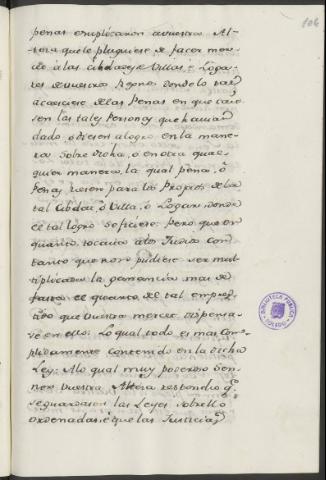 106
penas suplicaron a vuestra Al-
teza que le pluguiese de facer mer-
ced á las cibdades é Villas é Loga-
res de vuestros Regnos donde lo tal
acaeciese de las Penas en que caie-
sen las tales Personas que havian
dado ó diesen á logro en la mane-
ra sobre dicha, ó en otra qual-
quier manera, la qual pena, ó
Penas fuesen para los Propios de la
tal Cibdad, ó Villa, ó Logar donde
el tal logro se ficiese: Pero que en
quanto tocaba a los Judios con
tanto que non pudiese ser mul-
tiplicada la ganancia mas de
fasta el quarto de tal
que vuestra merced dispensa-
se en ello. Lo qual todo es mas com-
plidamente contenido en la dicha
Ley: A lo qual muy poderoso Sen-
nor vuestra Alteza respondió q.e
se guardasen las Leyes sobre ello
ordenadas, é que las Justicias
BIBLIOTECA PUBLICA
TOLEDO